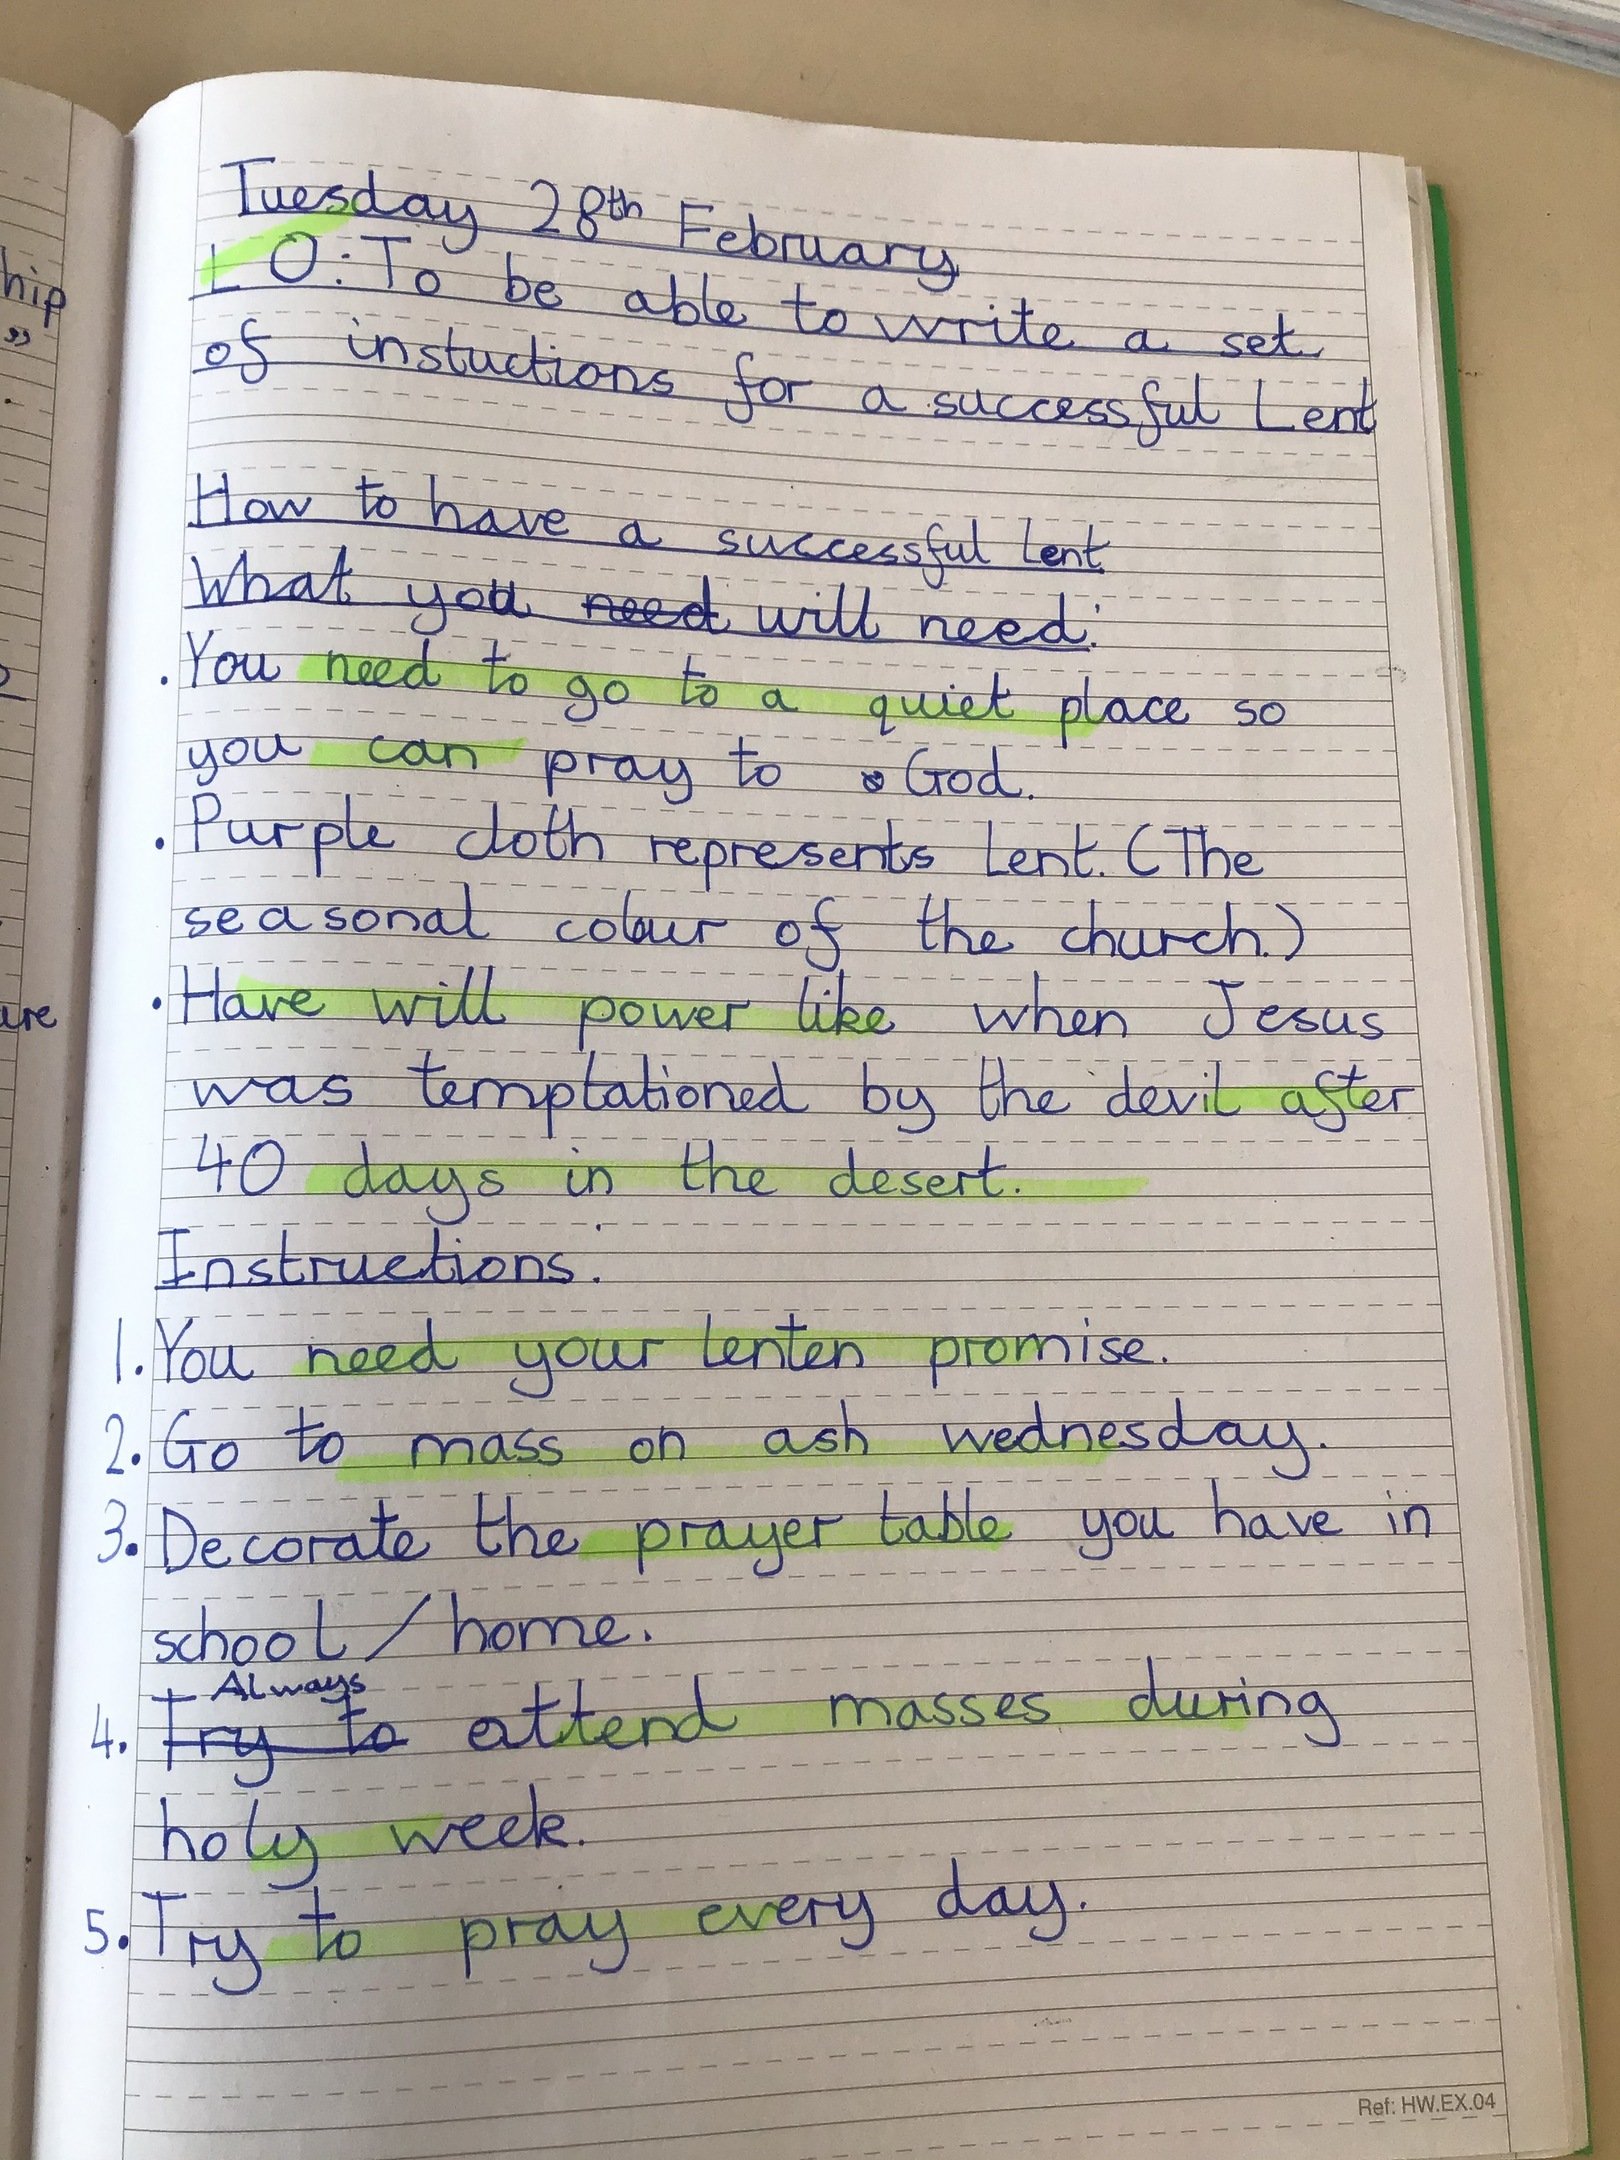 Tuesday 28th February
LO: To be able to write a set
of instuctions for a successful Lent
How to have a successful Lent
What you need will need:
. You need to go to a quiet place so
you can pray to God.
. Purple cloth represents Lent. (The
seasonal colour of the church.)
. Have will power like when Jesus
was temptationed by the devil after
40 days in the desert.
Instructions:
1. You need your lenten promise.
2. Go to mass on ash wednesday.
3. Decorate the prayer table you have in
school / home.
Always
4. Try to attend masses during
holy week.
5. Try to pray every day.
Ref: HW.EX.04
hip
”
ure